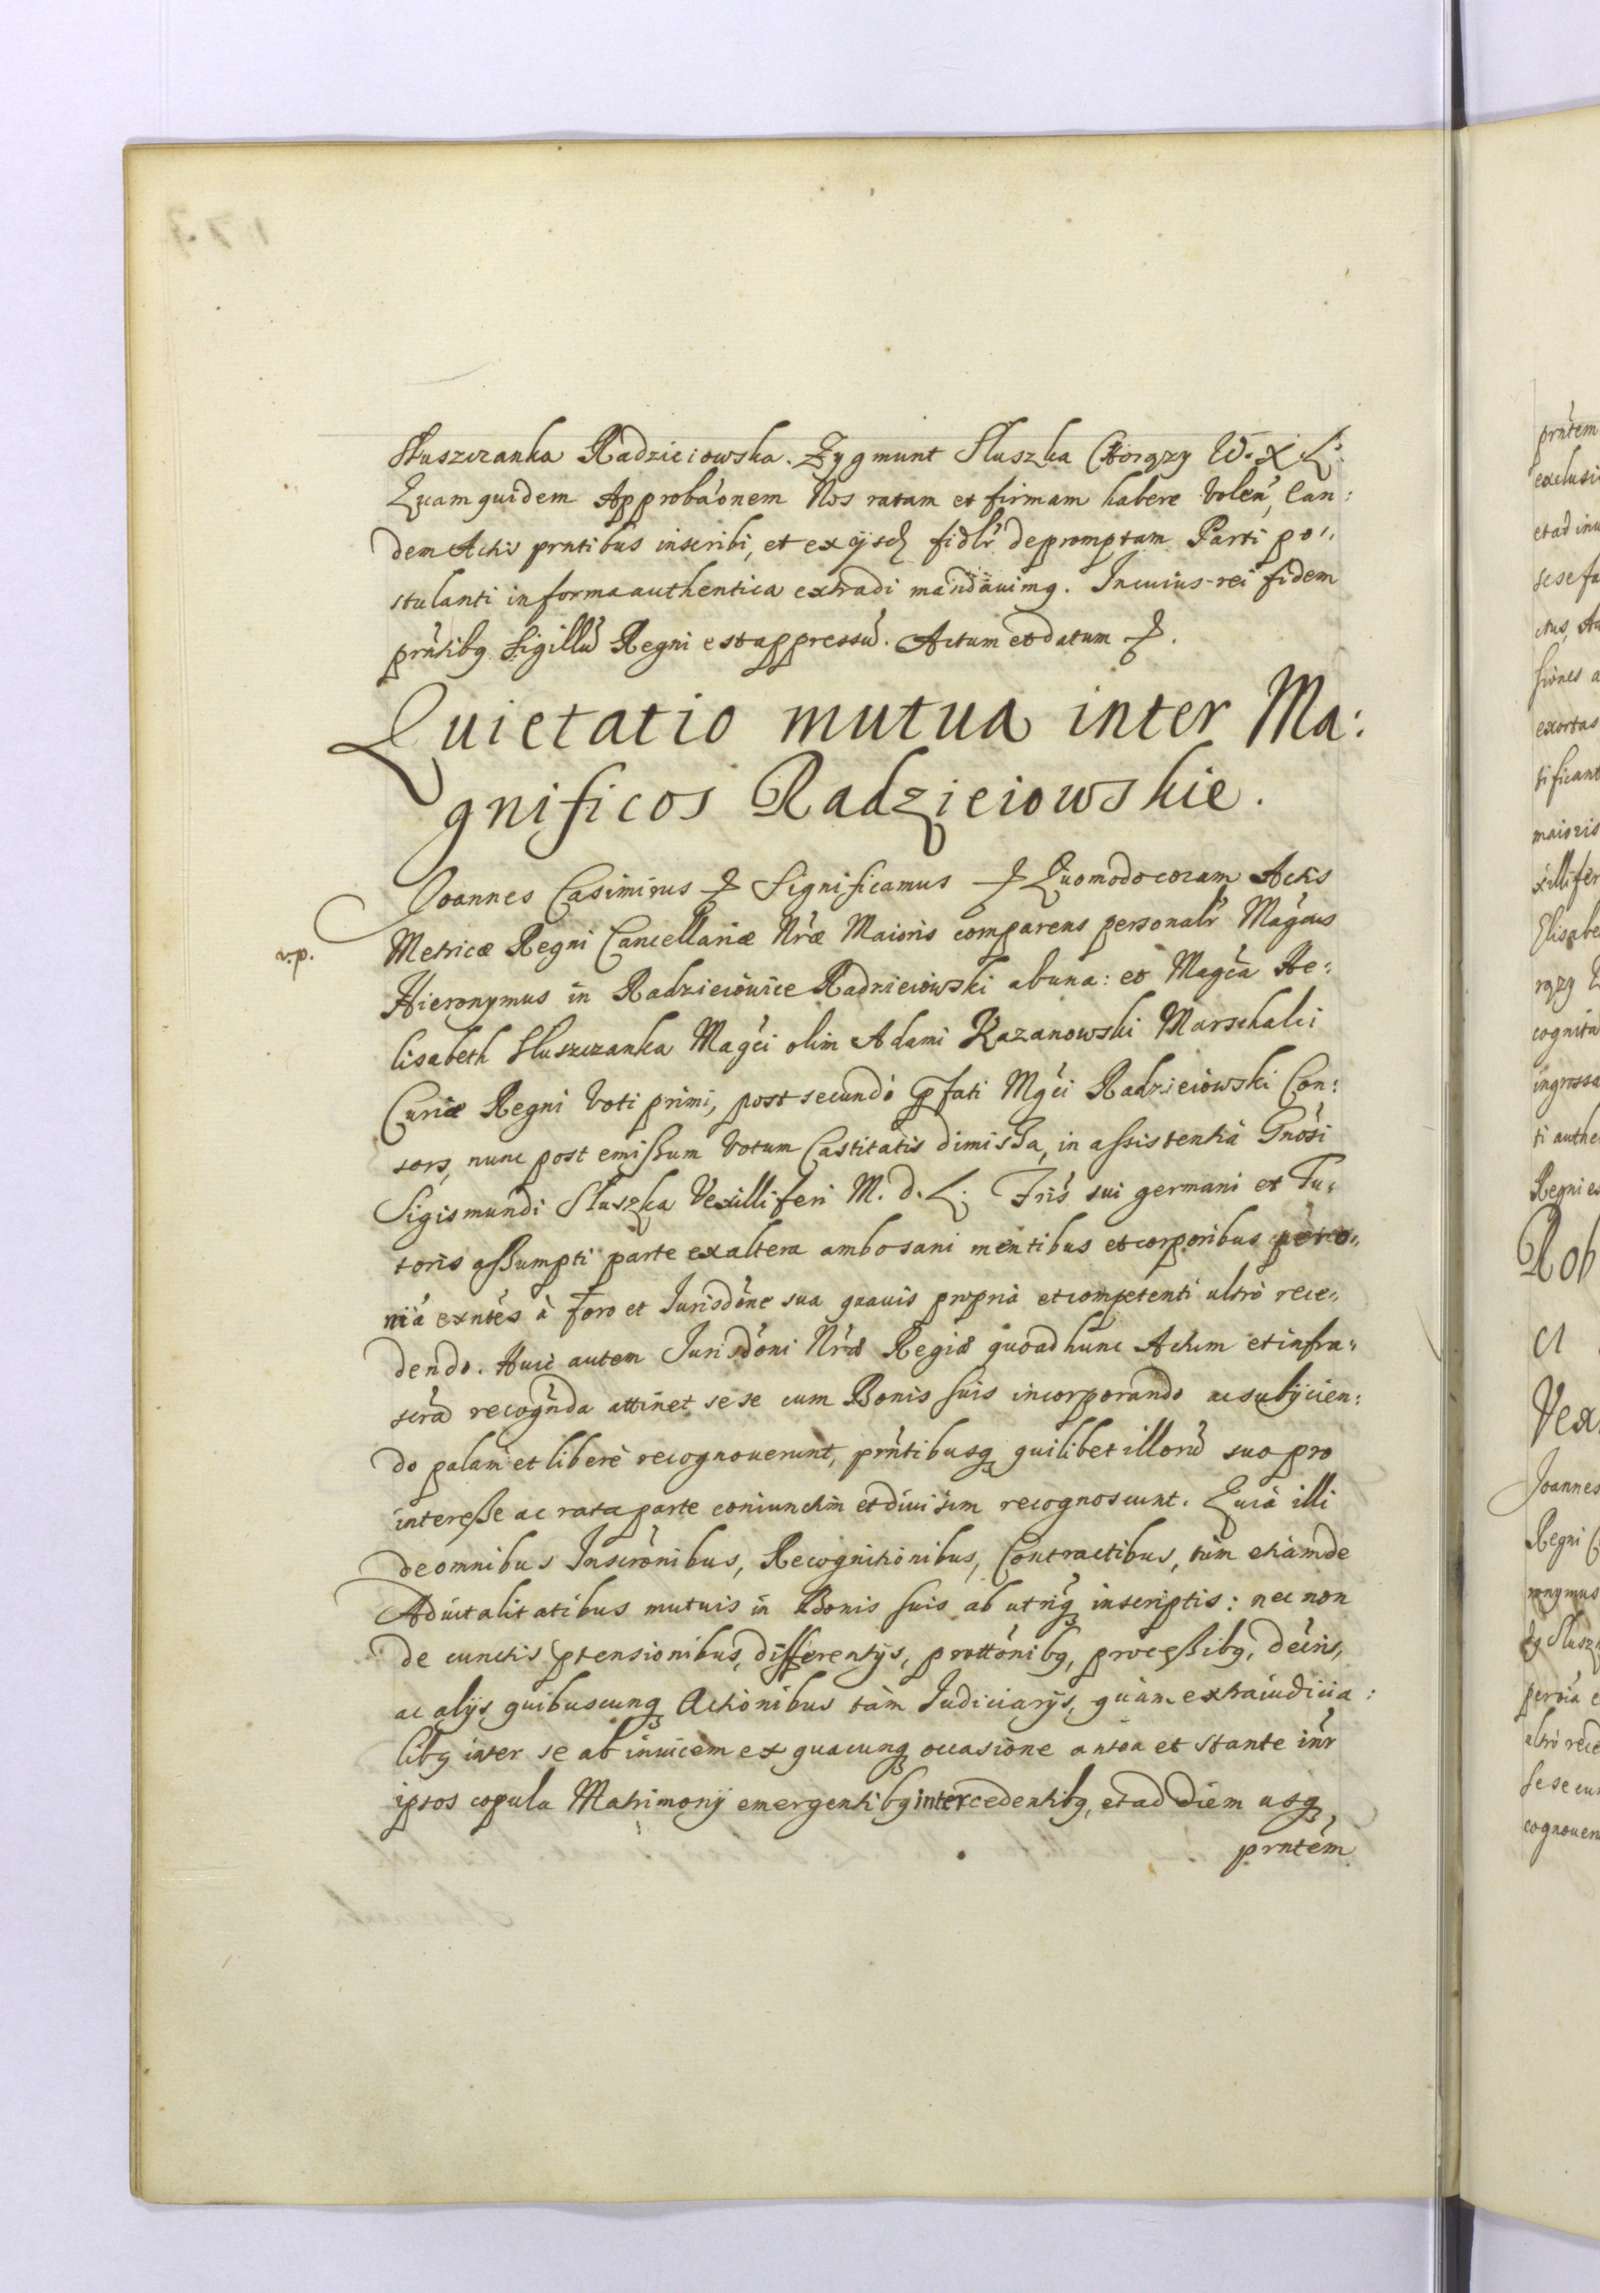 Słuszczanka Radzieiowska. Zygmunt Słuszka Chorązy W. X L.
Quam quidem Approbãonem Nos ratam et firmam habere volen, Ean:
dem Actis prntibus inscribi, et ex ijsd fidlr depromptam Parti po:
stulanti in forma authentica extradi mandauimq. In cuius rei fidem
prntibq Sigillũ Regni est appressũ. Actum et datum
Quietatio mutua inter Ma:
gnificos Radzieiowskie.
Joannes Casimirus Significamus Quomodo coram Actis
v.p.
Metricæ Regni Cancellariæ Nræ Maioris comparens personalr Magcus
Hieronymus in Radzieiowice Radzieiowski ab una: et Magca He:
lisabeth Słuszczanka Magci olim Adami Kazanowski Marschalci
Curiæ Regni voti primi, post secundò pfati Mgci Radzieiowski Con:
sors, nunc post emissum votum Castitatis dimissa, in assistentia Gnosi
Sigismundi Słuszka Vexilliferi M. d. L. Fris sui germani et Tu:
toris assumpti parte ex altera ambo sani mentibus et corporibus
exntes à foro et Jurisdone sua quauis propria et competenti ultrò rece:
dendo. Huic autem Jurisdoni Nræ Regiæ quoad hunc Actum et infra:
scra recognda attinet sese cum Bonis suis incorporando ac subijcien:
do palam et liberè recognouerunt, prntibusq quilibet illorũ suo pro
interesse ac rata parte coniunctim et diuisim recognoscunt. Quia illi
de omnibus Inscronibus, Recognitionibus, Contractibus, tùm etiam de
Aduitalitatibus mutuis in Bonis suis ab utrinq inscriptis: nec non
de cunctis ptensionibus, differentijs, prottonibq, processibq, decris,
ac alijs quibuscunq Actionibus tàm Judiciarijs, quàm extraiudicia:
libq inter se ab inuicem ex quacunq occasione antea et stante inr
ipsos copula Matrimonij emergentibq intercedentibq, et ad diem usq
prntem
prntem
exclusi
et ad inu
sese fa
ctus, Au
siones a
exortas
tificant
maioris
xillifer
Elisabe
rązy
cognita
ingrossa
ti authe
Regni es
Rob
Vex
Joannes
Regni C
ronymus
Słusz
ultrò rece
sese cum
cognouer